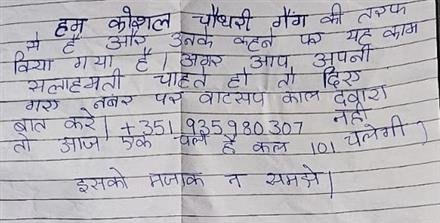 हम कौशल चौधरी गैंग की तरफ
से है और उनके कहने पर यह काम
किया गया है। अगर आप अपनी
सलाहमती चाहते हो तो दिए
गए नंबर पर वाटसप काल द्वारा
बात करे। +351 935980307 नहीं
तो आज एक चली है कल 101 चलेगी।
इसको मजाक न समझे।